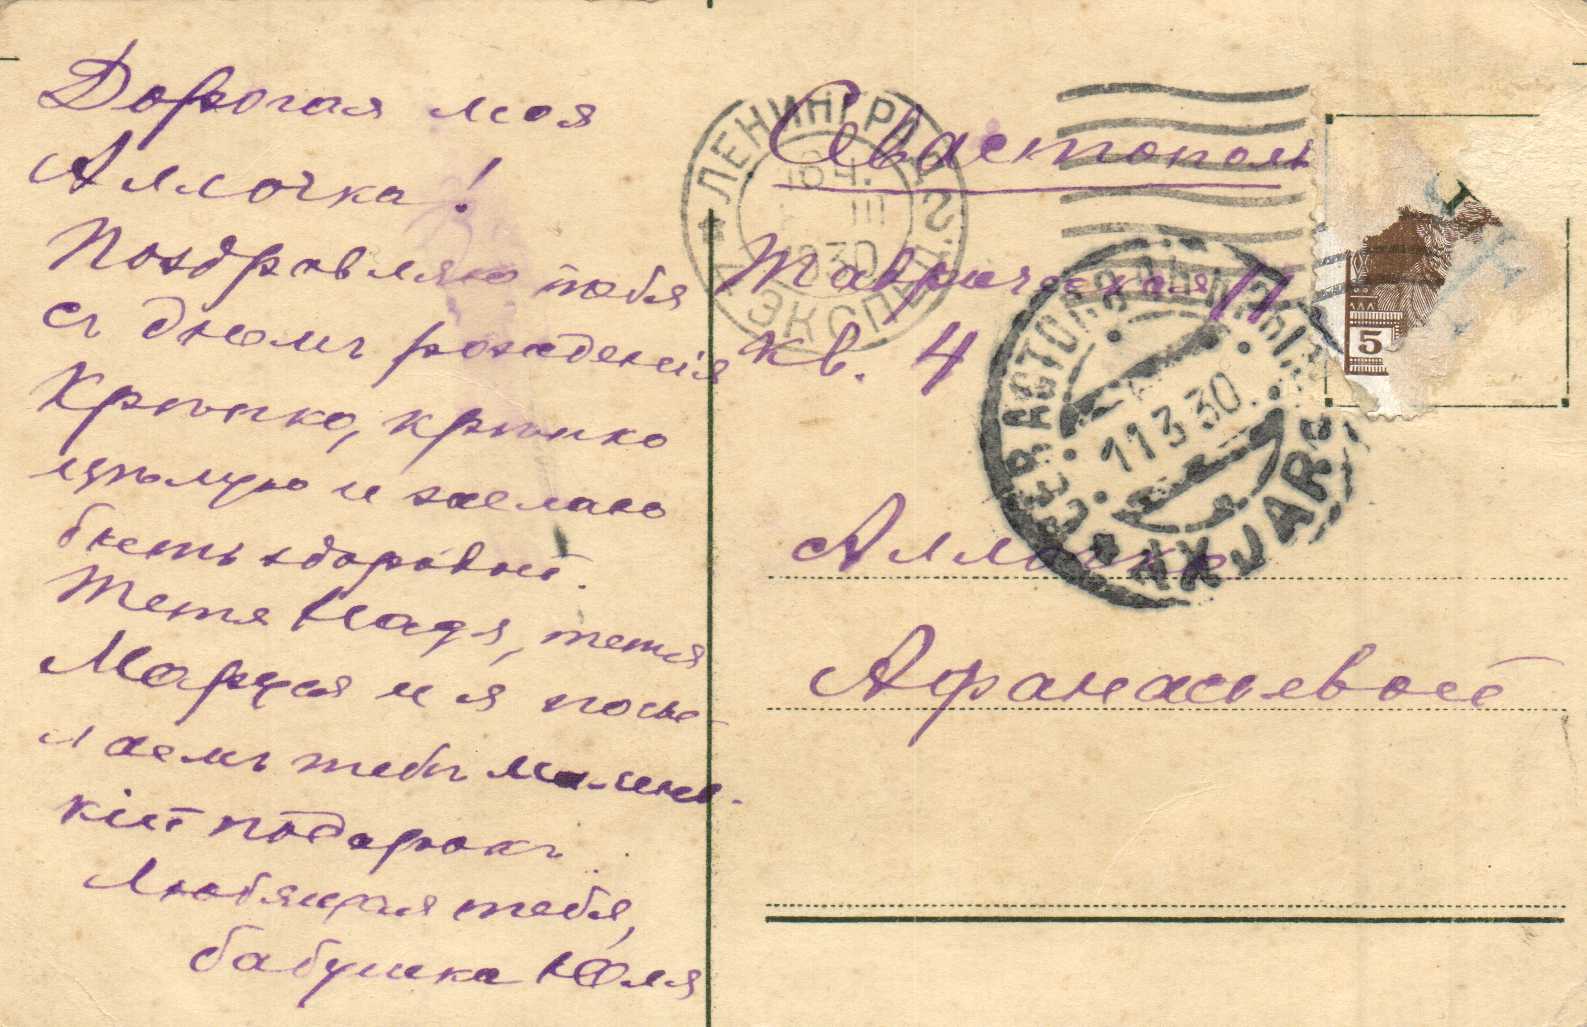 Дорогая моя
Аллочка!
Поздравляю тебя
съ днемъ рожденія
Крѣпко, крѣпко
цѣлую и желаю
быть здоровой.
Тетя Надя, тетя
Маруся и я посы-
лаемъ тебѣ малень-
кій подарокъ
Любящая тебя,
бабушка Юля
ЛЕНИНГРАД
16 Ч.
III
1930
ЭКСПЕД.
Севастополь
Таврическая 11
кв. 4
5
СЕВАСТОПОЛЬ
11 3 30
AXJAR
Аллочке
Афанасьевой